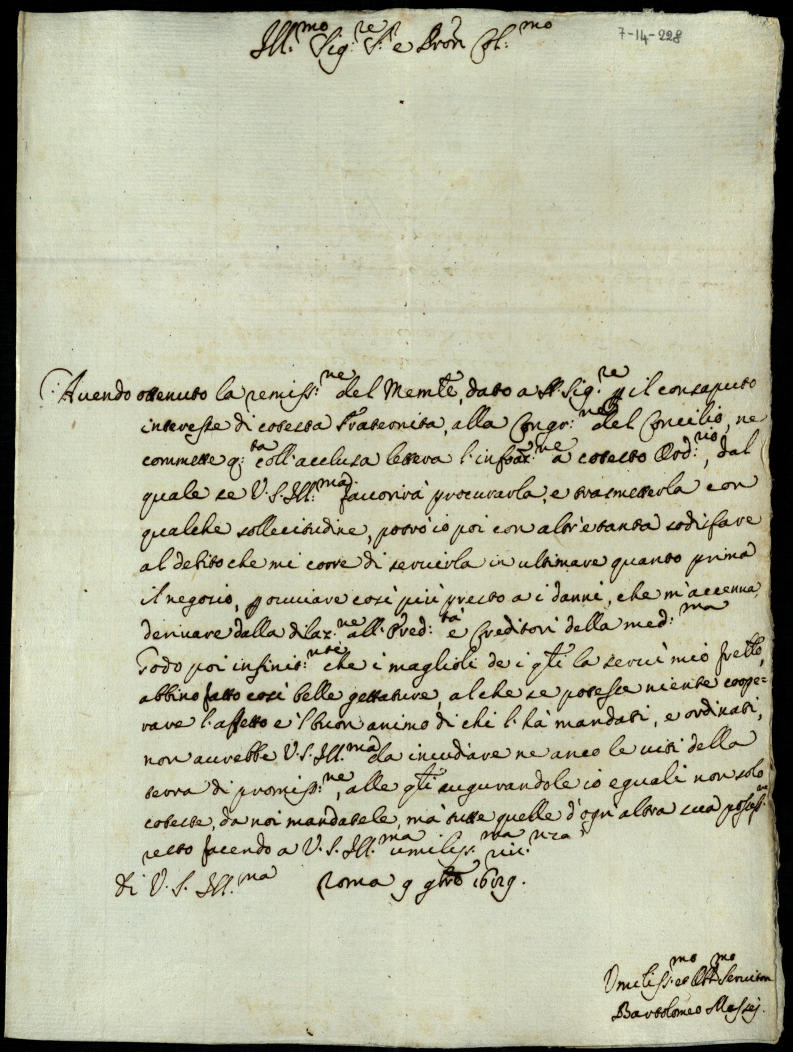 Ill:mo Sig:re S:r e Pron Col:mo
7-14-228
Auendo ottenuto la remiss:ne del Memle, dato a N. Sig:re p il consaputo
interesse di cotesta Fraternita, alla Congr:ne del Concilio, ne
commette q:ta coll'acclusa lettera l'infoãr:ne a cotesto Ord:rio, dal
quale se V.S. Ill:ma fauorirà procurarla, e trasmetterla con
qualche sollecitudine, potrò io poi con altr'etanta sodisfare
al debito che mi corre di seruirla in ultimare quanto prima
il negozio, p ouuiare così più presto a i danni, che m'accenna
deriuare dalla dilaz:ne all'Ered:tà e Creditori della med:ma
Godo poi infinit:nte che i maglioli de i qli la seruì mio frello,
abbino fatto così belle gettature, al che se potesse niente coope-
rare l'affetto e 'l buon animo di chi l'hà mandati, e ordinati,
non aurebbe V.S. Ill:ma da inuidiare ne anco le uiti della
terra di promiss:ne, alle qli augurandole io eguali non solo
coteste, da noi mandatele, mà tutte quelle d'ogn'altra sua possess:ne
resto facendo a V.S. Ill:ma umiliss:ma riu:nza
Di V.S. Ill:ma Roma 9 gbre
Umiliss:mo et Obb:mo Seruitore
Bartolomeo Massei.